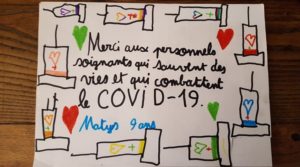 Merci aux personnels
soignants qui sauvent des
vies et qui combattent
le COVID-19.
Matys 9 ans